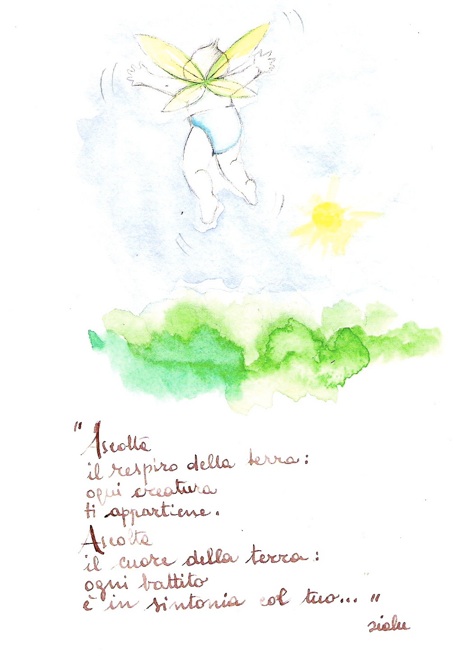 "Ascolta
il respiro della terra:
ogni creatura
ti appartiene.
Ascolta
il cuore della terra:
ogni battito
è in sintonia col tuo... "
zialu